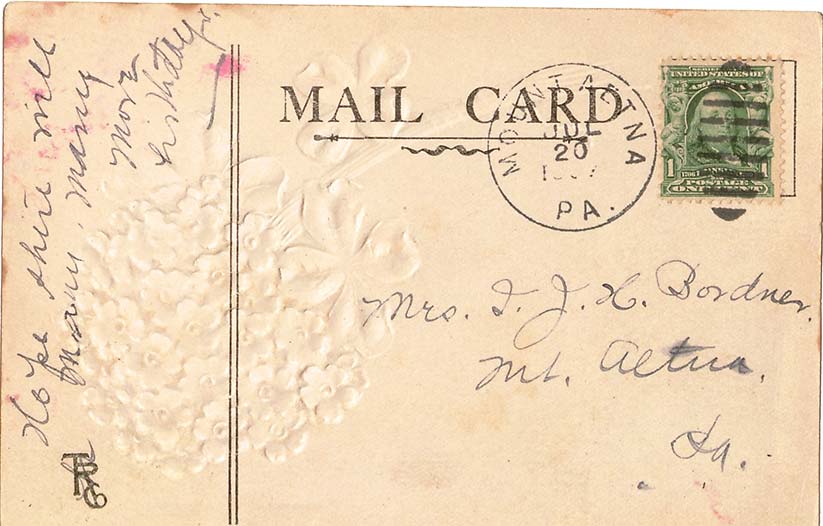 MAIL CARD
MOUNT AETNA
JUL
20
PA.
SERIES 1902
UNITED STATES OF
AMERICA
1 1
POSTAGE
ONE CENT
Hope there will
be many, many
more
birthdays.
Mrs. I. J. H. Bordner.
Mt. Aetna.
Pa.